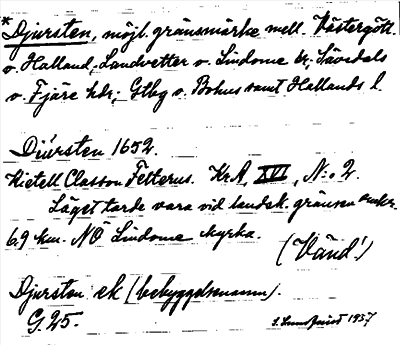 *Djursten, möjl. gränsmärke mell. Västergötl.
o. Halland, Landvetter o. Lindome sn, Sävedals
o. Fjäre hdr; Gtbg o. Bohus samt Hallands l.
Diúrsten 1652.
Kietell Classon Felterus. KrA, XVI, N:o 2.
Läget torde vara vid landsk. gränsen omkr.
6.9 km. NÖ Lindome kyrka.
(Vänd!)
Djursten ek (bebyggelsenamn).
G. 25.
1937